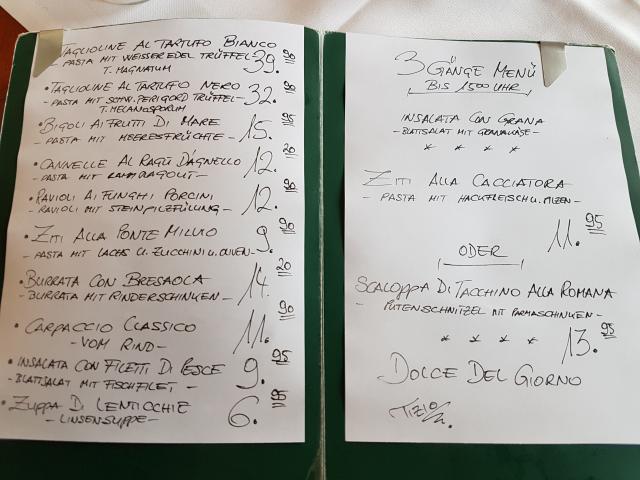 TAGLIOLINE AL TARTUFO BIANCO
- PASTA MIT WEISSER EDEL TRÜFFEL - 39.90
T. MAGNATUM
• TAGLIOLINE AL TARTUFO NERO
- PASTA MIT SCHW. PERIGORD TRÜFFEL - 32.90
T. MELANOSPORUM
• BIGOLI AI FRUTTI DI MARE
- PASTA MIT MEERESFRÜCHTE - 15.95
• CANNELLE AL RAGÙ D'AGNELLO
- PASTA MIT LAMMRAGOUT - 12.20
• RAVIOLI AI FUNGHI PORCINI
- RAVIOLI MIT STEINPILZFÜLLUNG - 12.90
• ZITI ALLA PONTE MILVIO
- PASTA MIT LACHS U. ZUCCHINI U. OLIVEN - 9.90
• BURRATA CON BRESAOLA
- BURRATA MIT RINDERSCHINKEN - 14.20
• CARPACCIO CLASSICO
- VOM RIND - 11.90
• INSALATA CON FILETTI DI PESCE
- BLATTSALAT MIT FISCHFILET - 9.95
• ZUPPA DI LENTICCHIE
- LINSENSUPPE - 6.
3 GÄNGE MENÜ
BIS 1500 UHR
INSALATA CON GRANA
- BLATTSALAT MIT GRANAKÄSE -
* * * *
ZITI ALLA CACCIATORA
- PASTA MIT HACKFLEISCH U. PILZEN -
11.95
ODER
SCALOPPA DI TACCHINO ALLA ROMANA
- PUTENSCHNITZEL MIT PARMASCHINKEN -
* * * * 13.95
DOLCE DEL GIORNO